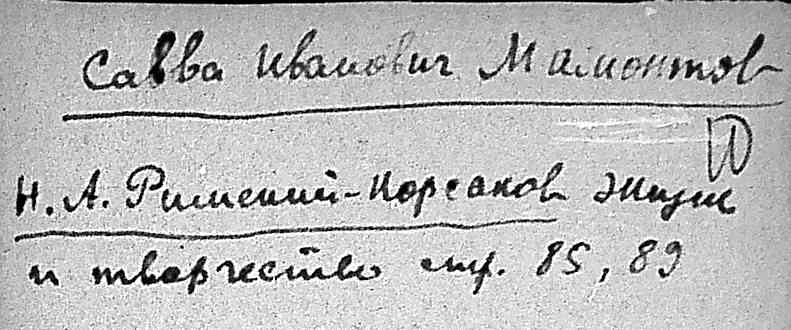 Савва Иванович Мамонтов
Н. А. Римский-Корсаков жизнь
и творчество стр. 85, 89